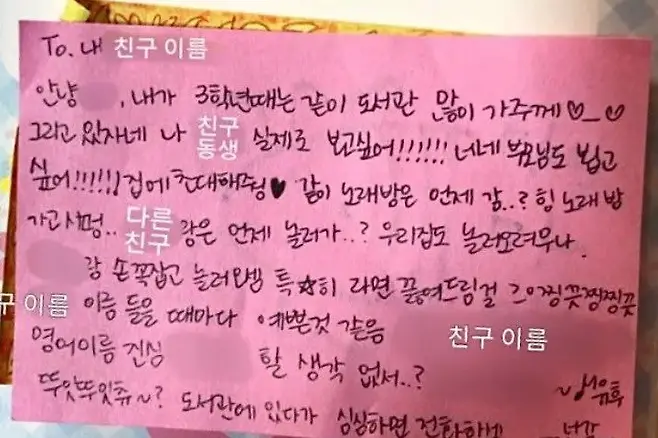 To. 내 친구 이름
안냥 , 내가 3학년때는 같이 도서관 많이 가주께♡_♡
그리고 있자네 나 친구 동생 실제로 보고싶어!!!!!! 너네 부모님도 뵙고
싶어!!!!!! 집에 초대해줭♥ 같이 노래방은 언제 감..? 힝 노래방
가고시펑.. 다른 친구 랑은 언제 놀러가..? 우리집도 놀러오려우나
랑 손꼭잡고 놀러오셈 특☆히 라면 끓여드림걸
구 이름 이름 들을 때마다 예쁜것 같음 친구 이름
영어이름 진심 할 생각 없서..?
뚜잇뚜잇츄~? 도서관에 있다가 심심하면 전화하